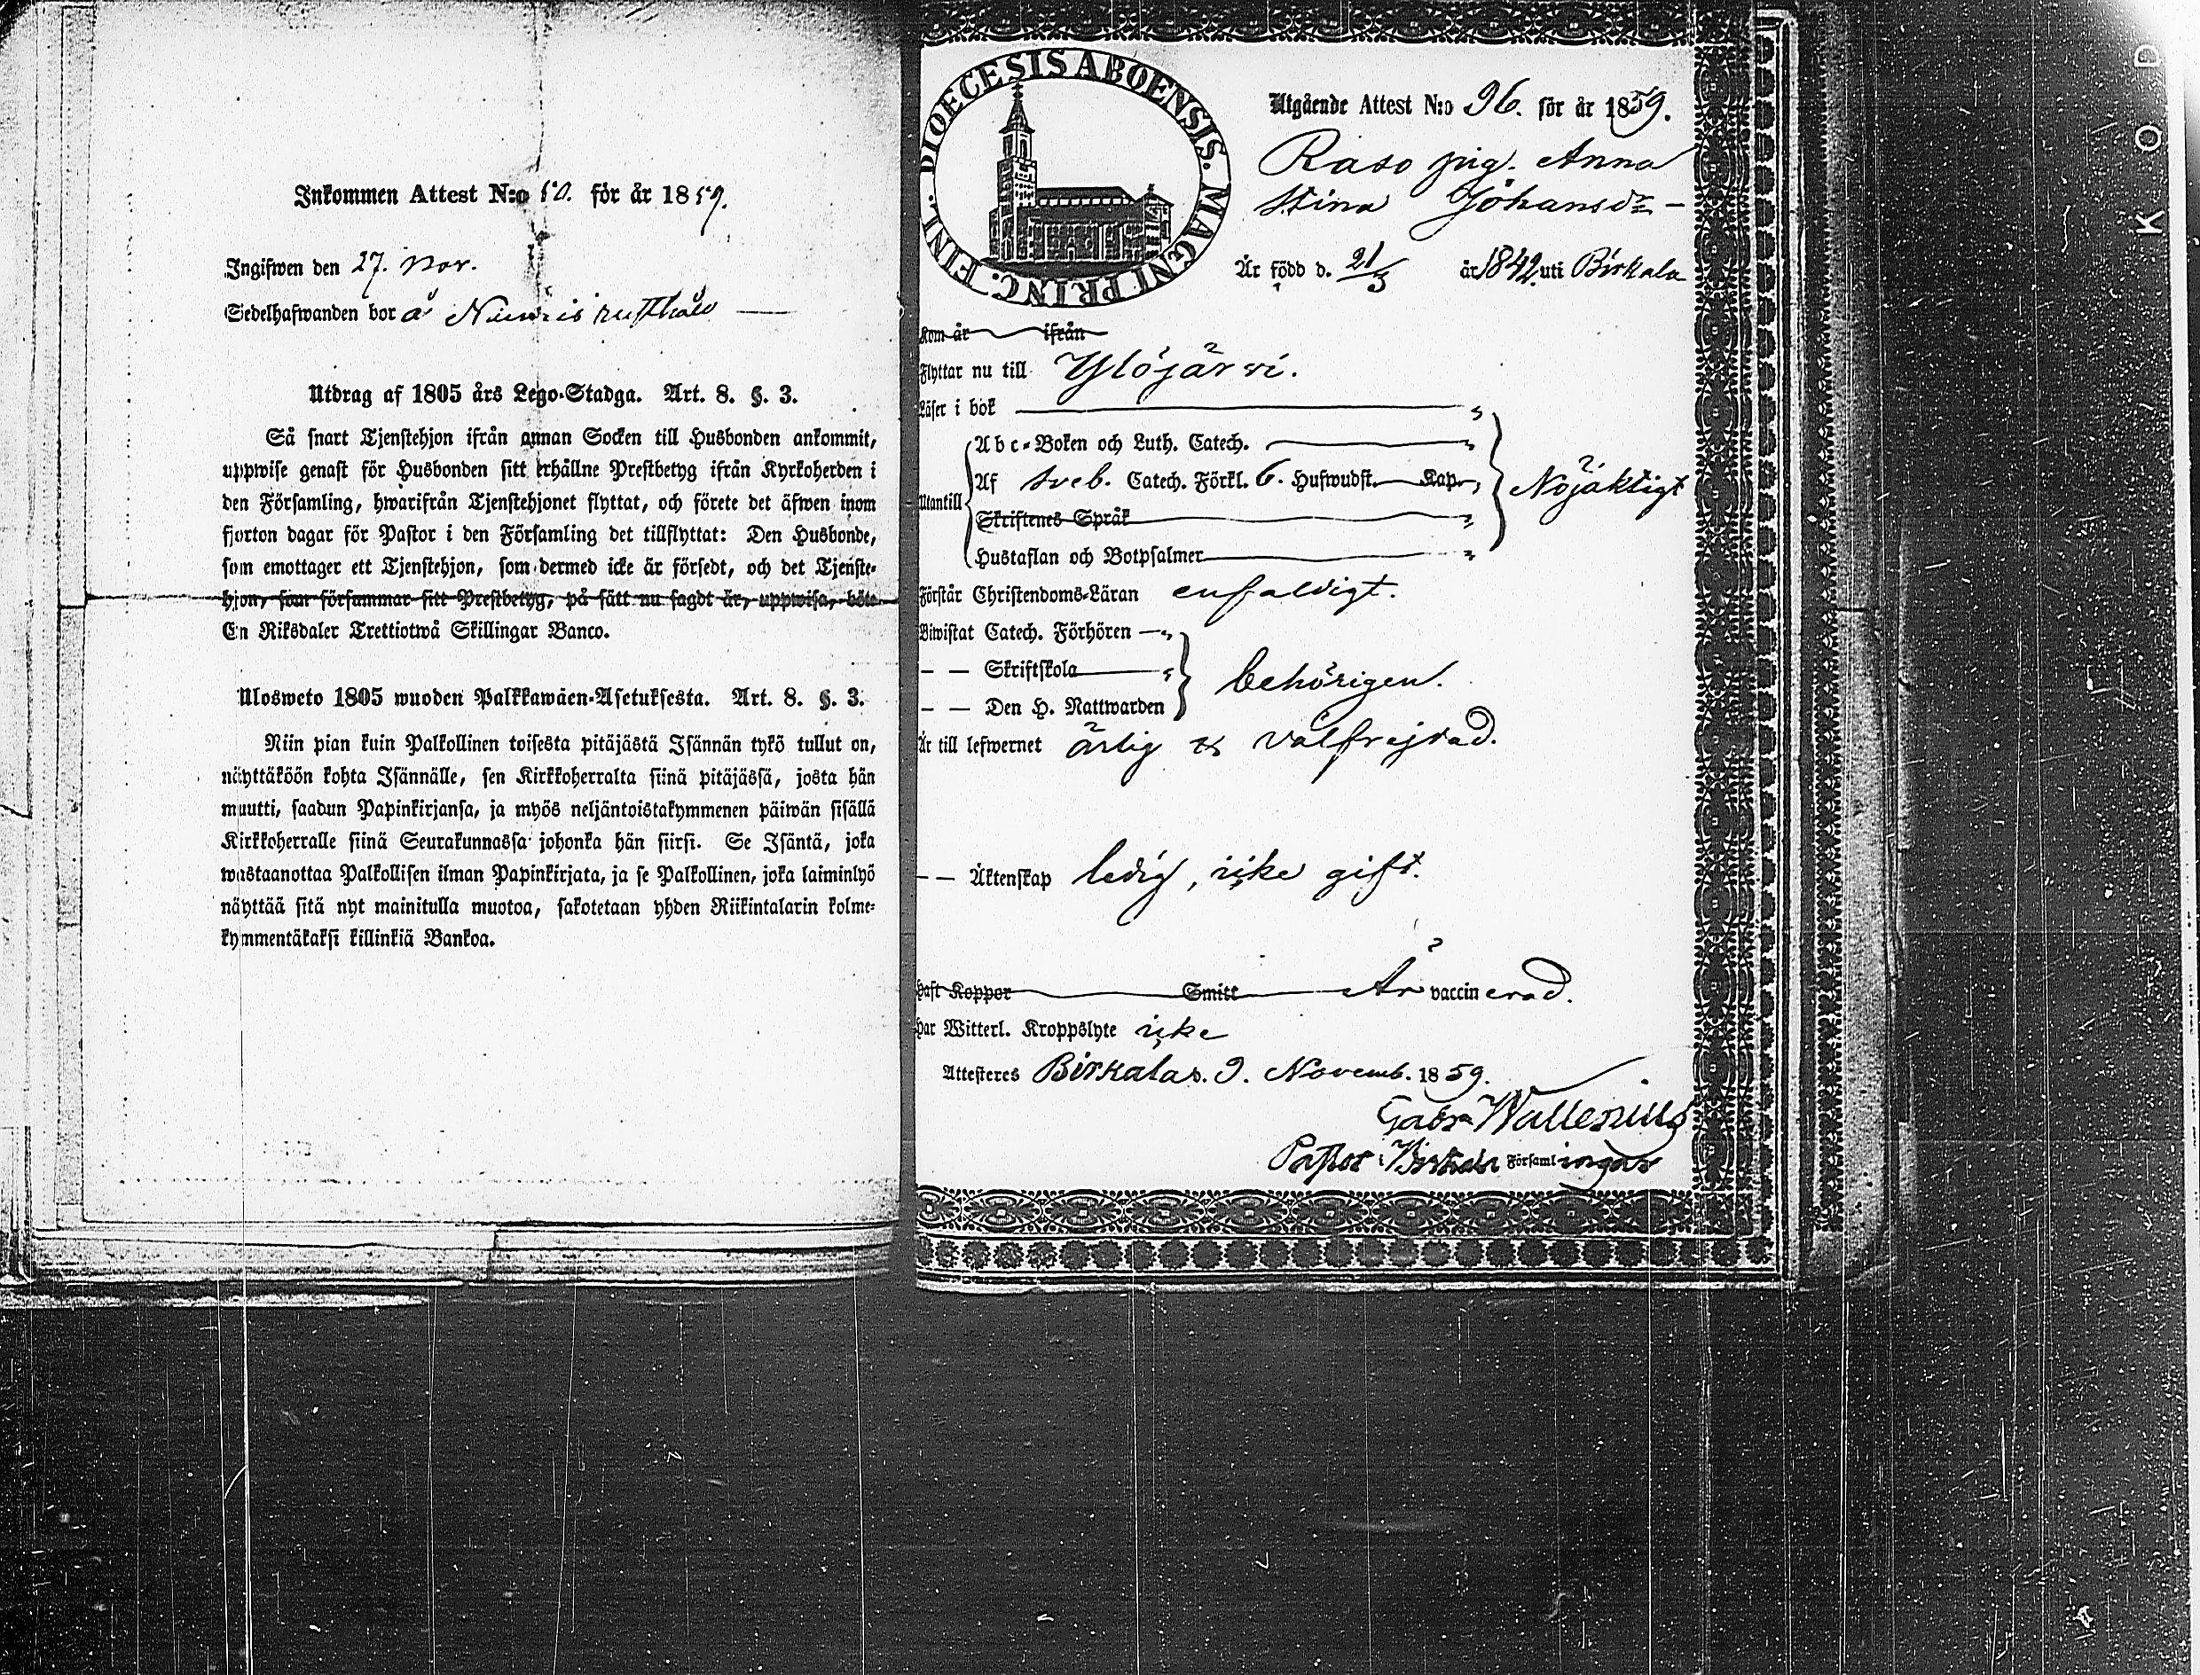 Inkommen Attest N:o 50. för år 1859.
Ingifwen den 27. Nov.
Sedelhafwanden bor å
Utdrag af 1805 års Lego-Stadga. Art. 8. §. 3.
Så snart Tjenstehjon ifrån annan Socken till Husbonden ankommit,
uppwise genast för Husbonden sitt erhållne Prestbetyg ifrån Kyrkoherden i
den Församling, hwarifrån Tjenstehjonet flyttat, och förete det äfwen inom
fjorton dagar för Pastor i den Församling det tillflyttat: Den Husbonde,
som emottager ett Tjenstehjon, som dermed icke är försedt, och det Tjenste-
hjon, som försummar sitt Prestbetyg, på sätt nu sagdt är, uppwisa, böte
En Riksdaler Trettiotwå Skillingar Banco.
Ulosweto 1805 wuoden Palkkawäen-Asetuksesta. Art. 8. §. 3.
Niin pian kuin Palkollinen toisesta pitäjästä Isännän tykö tullut on,
näyttäköön kohta Isännälle, sen Kirkkoherralta siinä pitäjässä, josta hän
muutti, saadun Papinkirjansa, ja myös neljäntoistakymmenen päiwän sisällä
Kirkkoherralle siinä Seurakunnassa johonka hän siirsi. Se Isäntä, joka
wastaanottaa Palkollisen ilman Papinkirjata, ja se Palkollinen, joka laiminlyö
näyttää sitä nyt mainitulla muotoa, sakotetaan yhden Riikintalarin kolme-
kymmentäkaksi killinkiä Bankoa.
DIOECESIS ABOENSIS. MAGNI PRINC. FINL.
Utgående Attest N:o 96. för år 1859.
Raso pig. Anna
Stina Johansdr
Är född d. 21/3 år 1842 uti Birkala
Kom år ifrån
Flyttar nu till Ylöjärvi.
Läser i bok
Abc-Boken och Luth. Catech.
Utantill Af Sveb. Catech. Förkl. 6. Hufwudst. Kap. Nöjaktigt
Skriftenes Språk
Hustaflan och Botpsalmer
Förstår Christendoms-Läran enfaldigt.
Biwistat Catech. Förhören
— — Skriftskola behörigen.
— — Den H. Nattwarden
Är till lefwernet ärlig & välfrejdad.
— — Äktenskap ledig, icke gift.
Haft Koppor Smitt Är vaccinerad.
Har Witterl. Kroppslyte icke
Attesteres Birkala d. 9. Novemb. 1859.
Gabr Wallenius
Pastor i Birkala Församlingar
KOD